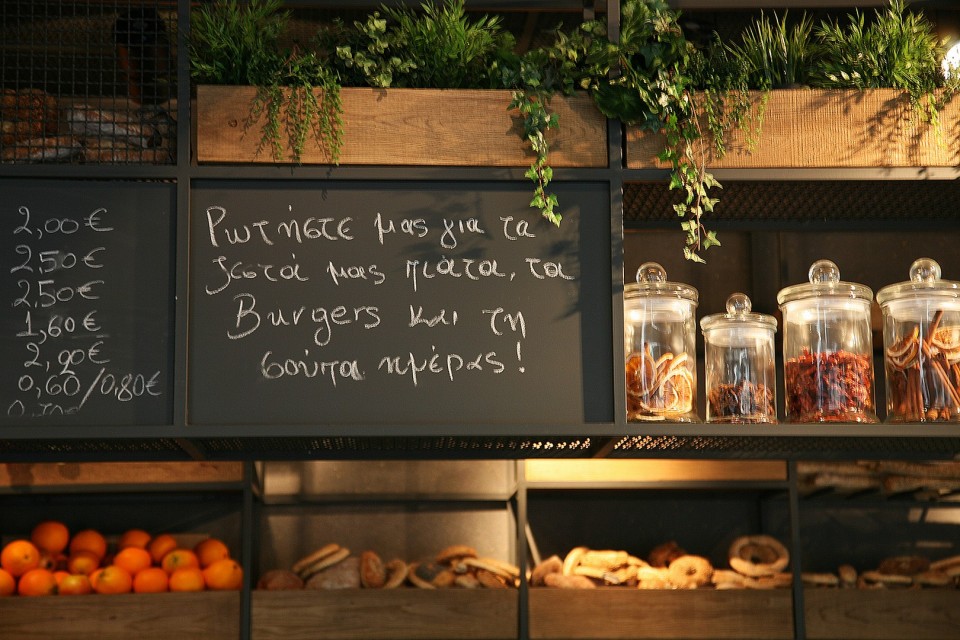 2,00€
2,50€
2,50€
1,60€
2,90€
0,60/0,80€
Ρωτήστε μας για τα
ζεστά μας πιάτα, τα
Burgers και τη
σούπα ημέρας!